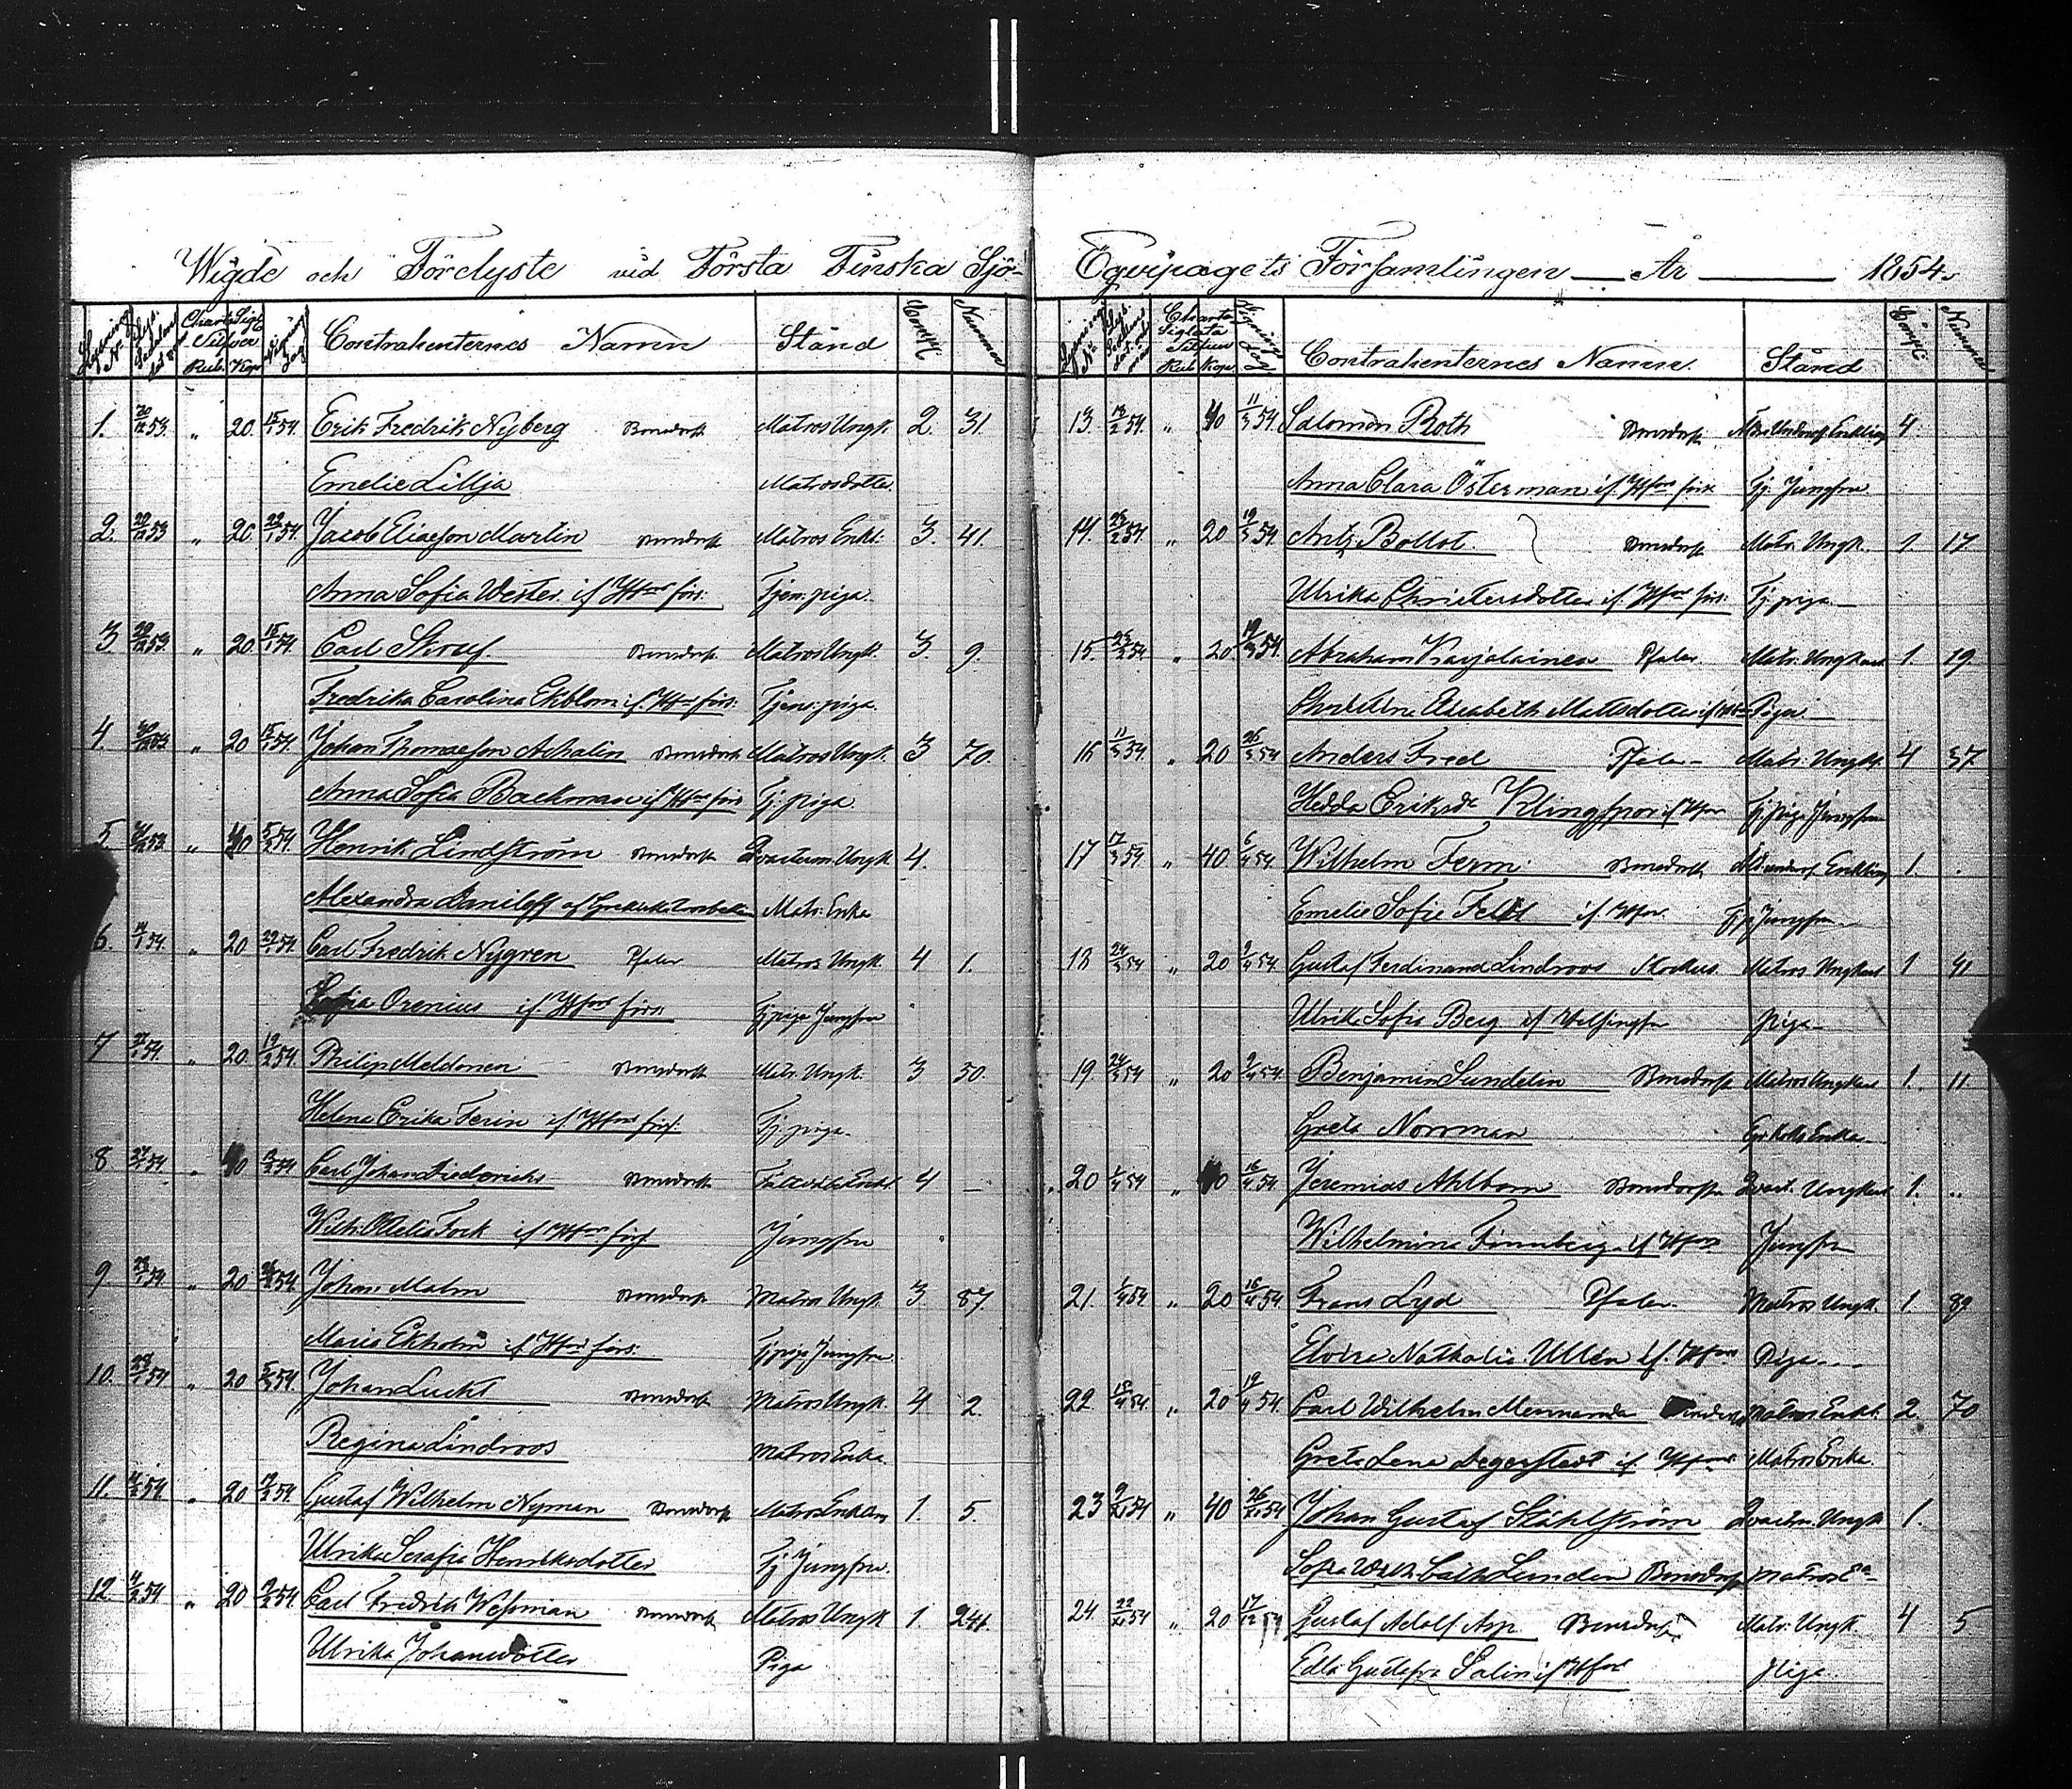 Wigde och Förelyste vid Första Finska Sjö-
Lysnings N:o Charta Sigl. Silfver Rub. Kop. Vignings dag Contrahenternes Namn Stånd Comp: Nummer
1. 20/12 53 " 20. 15/1 54. Erik Fredrik Nyberg Bonsdorff Matros Ungk. 2. 31.
Emelie Lillja Matrosdotter.
2. 20/12 53 " 20. 22/1 54. Jacob Eliaeson Martin Bonsdorff Matros Enkl. 3. 41.
Anna Sofia Wester. if Hfors förs: Tjen. piga.
3 20/12 53. " 20. 15/1 54. Carl Skruf. Bonsdorff Matros Ungk. 3. 9.
Fredrika Carolina Ekblom if. Hfors förs: Tjens. piga.
4. " 20 15/1 54. Johan Thomaeson Achalin Bonsdorff Matros Ungk. 3 70.
Anna Sofia Backman if Hfors förs Tj. piga
5 " 40 5/2 54. Henrik Lindström Bonsdorff Qvarterm. Ungk 4.
Alexandra Daniloff af Grekiska Matr. Enka
6. 14/1 54. " 20 22/1 54. Carl Fredrik Nygren Pfaler Matros Ungk. 4 1.
Sofia Orenius if. Hfors förs Tj piga Jungfru
7 21/1 54. " 20. 12/2 54. Philip Meldonen Bonsdorff Matr. Ungk. 3 30.
Helena Erika Ferin if Hfors förs: Tj. piga.
8. 27/1 54 " 40 12/2 54 Carl Johan Diedrichs Bonsdorff 4 —
Wilh: Ottilia Fock if Hfors förs Jungfru
9 28/1 54. " 20 54 Johan Malm Bonsdorff Matros Ungk. 3. 87.
Maria Ekholm if Hfors förs. Tj piga Jungfru
10. 28/1 54 " 20 5/3 54 Johan Luckt Bonsdorff Matros Ungk. 4 2.
Regina Lindroos Matros Enka
11. 4/2 54. " 20 19/2 54. Gustaf Wilhelm Nyman Bonsdorff Matros Enkling 1. 5.
Ulrika Serafia Henriksdotter Tj Jungfru.
12 4/2 54 " 20 19/2 54. Carl Fredrik Wessman Bonsdorff Matros Ungk 1. 241.
Ulrika Johansdotter Piga
Eqvipagets Församlingen — År — 1854.
Lysnings N:o Charta Siglata Silfver Rub Kop. Vignings dag Contrahenternes Namn. Stånd Comp: Nummer
13. 18/2 54. " 40 11/3 54 Salomon Roth Bonsdorff Enkling 4.
Anna Clara Österman if. Hfors förs Tj. Jungfru
14. 25/2 54. " 20 19/3 54. Antz Bollot. Bonsdorff Matr. Ungk. 1. 17
Ulrika Christersdotter if. Hfors förs: Tj piga —
15. 25/2 54 " 20. 19/3 54 Abraham Karjalainen Pfaler Matr. Ungkarl 1. 19
Christina Elisabeth Mattsdotter Piga —
16 11/3 54. " 20 26/3 54 Anders Fred Pfaler — Matr. Ungk. 4 37
Hedda Eriksdr Klingspor if Hfors Tj. Piga Jungfru
17 17/3 54. " 40 6/4 54. Wilhelm Ferm Bonsdorff Enkling 1. .
Emelie Sofie Feldt if. Hfor. Tj Jungfru —
18 24/3 54 " 20 2/4 54. Gustaf Ferdinand Lindroos Matros Ungkarl 1 41
Ulrika Sofia Berg if Helsingfor piga —
19. 24/3 54 " 20 2/4 54. Benjamin Sundelin Bonsdorff Matros Ungkarl 1. 11
Greta Norrman Enka.
20 1/4 54 " 40 16/4 54 Jeremias Ahlbom Bonsdorff Qvart. Ungkarl 1. ..
Wilhelmina Finnberg if Hfors Jungfru
21. 1/4 54 " 20 16/4 54. Frans Lyd Pfaler Matros Ungk. 1. 89
Elvira Nathalia Ullen if. Hfors Piga ---
22. 15/4 54. " 20 19/4 54. Carl Wilhelm Mennander Matros Enkl: 2. 70
Greta Lena Degerstedt if Hfors Matros Enka.
23 54 " 40 26/ 54 Johan Gustaf Ståhlström Qvartm. Ungk 1.
Sofia Cath Lunden Bonsdorff
24. 22/ 54 " 20 17/12 54 Gustaf Adolf Asp Bonsdorff Matr. Ungk. 4 5
Edla Gustafva Salin if Hfors Piga.